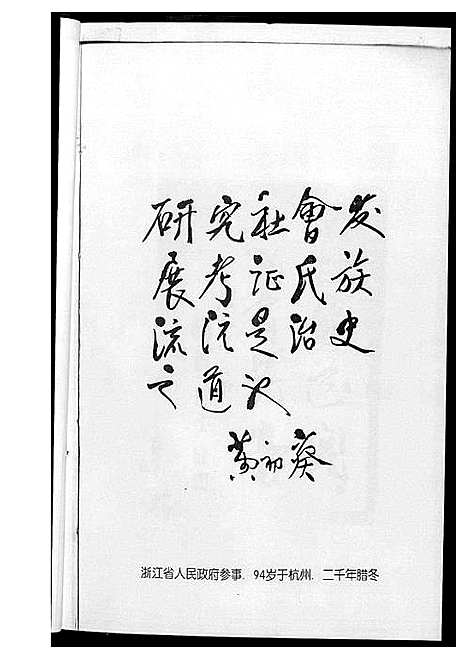 研究社會发
展考证氏族
流沆是治史
之道也
黄初葵
浙江省人民政府参事. 94岁于杭州. 二千年腊冬